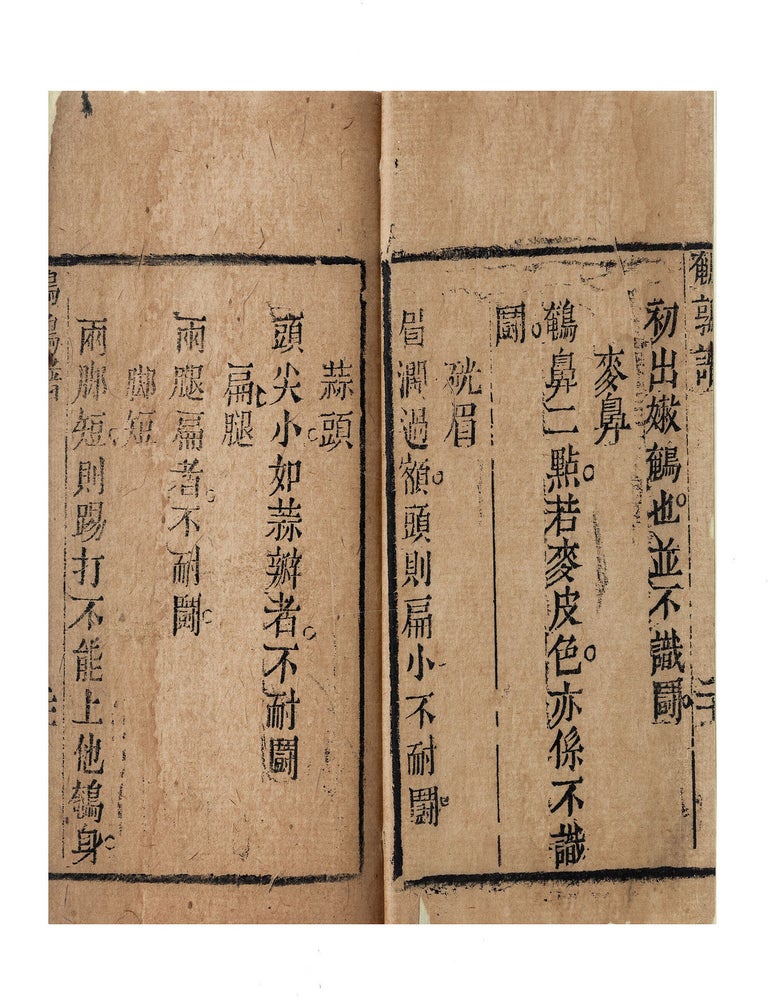 初出嫩鵪也並不識鬪
麥鼻
鵪鼻二點若麥皮色亦係不識
鬪
硄眉
眉濶過額頭則扁小不耐鬪
蒜頭
頭尖小如蒜瓣者不耐鬪
扁腿
兩腿扁者不耐鬪
脚短
兩脚短則踢打不能上他鵪身